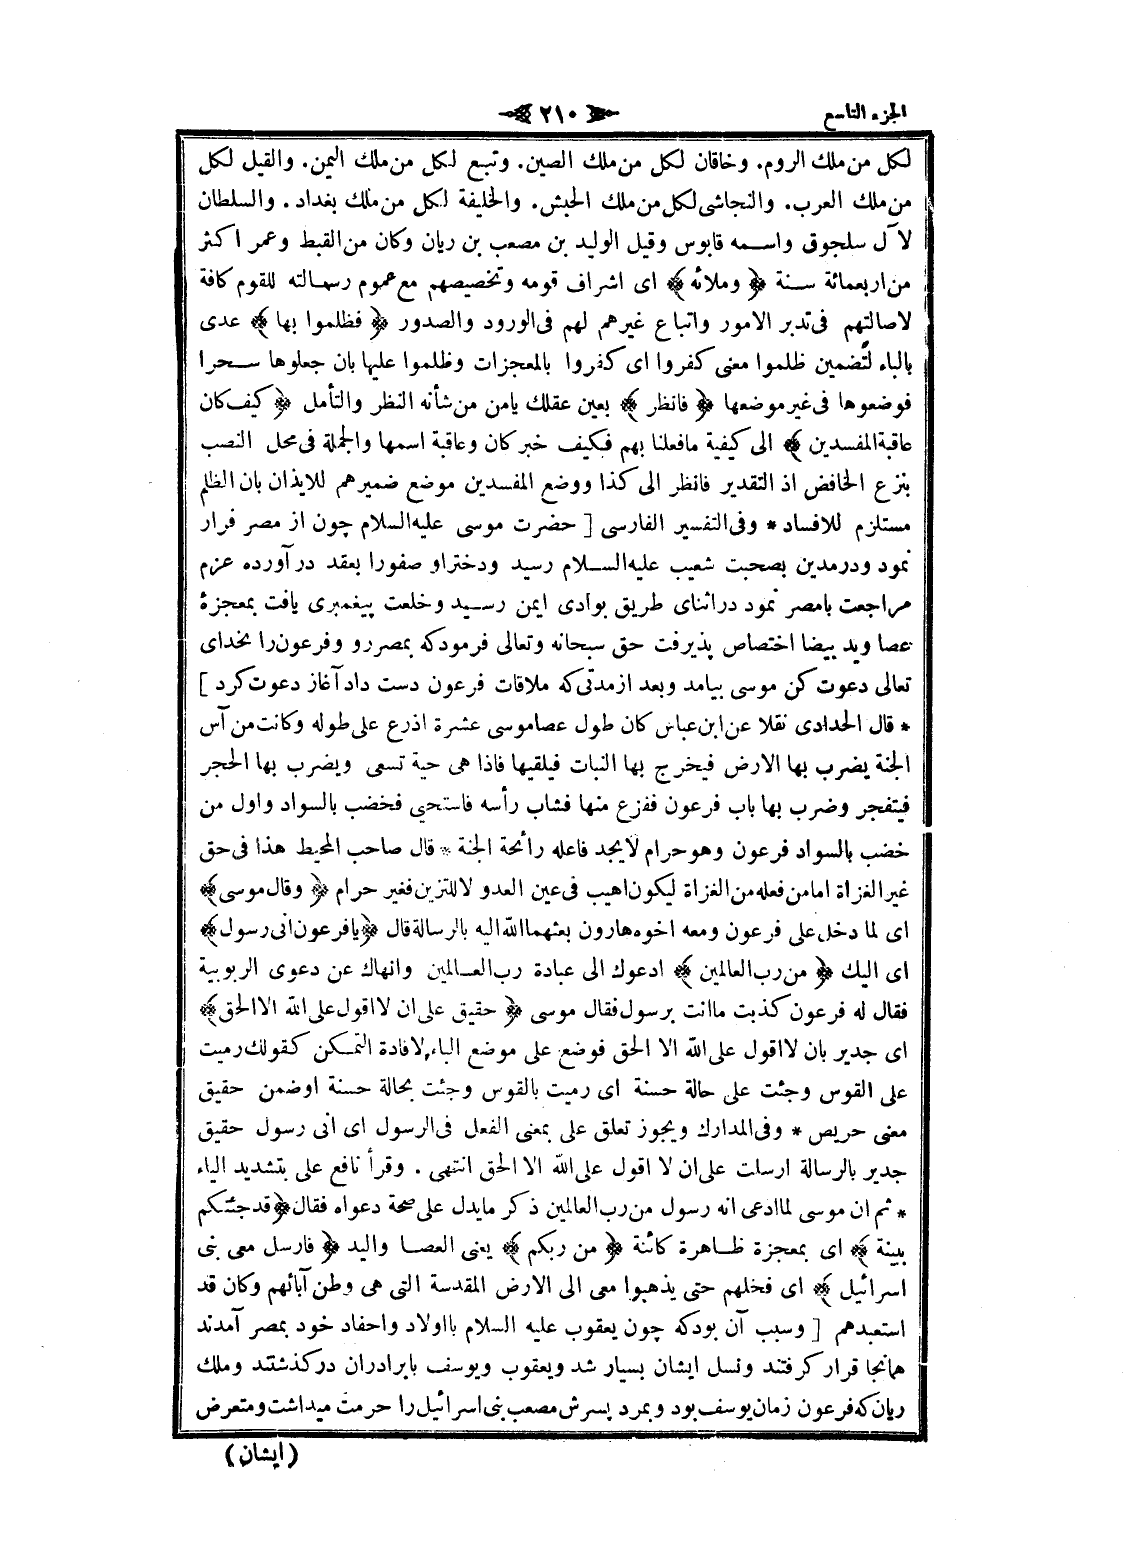 الجزء التاسع
٢١٠
لكل من ملك الروم. وخاقان لكل من ملك الصين. وتبع لكل من ملك اليمن. والقيل لكل
من ملك العرب. والنجاشى لكل من ملك الحبش. والخليفة لكل من ملك بغداد. والسلطان
لآل سلجوق واسمه قابوس وقيل الوليد بن مصعب بن ريان وكان من القبط وعمر اكثر
من اربعمائة سنة ﴿ وملائه ﴾ اى اشراف قومه وتخصيصهم مع عموم رسالته للقوم كافة
لاصالتهم فى تدبر الامور واتباع غيرهم لهم فى الورود والصدور ﴿ فظلموا بها ﴾ عدى
بالباء لتضمين ظلموا معنى كفروا اى كفروا بالمعجزات وظلموا عليها بان جعلوها سحرا
فوضعوها فى غير موضعها ﴿ فانظر ﴾ بعين عقلك يامن من شأنه النظر والتأمل ﴿ كيف كان
عاقبة المفسدين ﴾ الى كيفية مافعلنا بهم فكيف خبر كان وعاقبة اسمها والجملة فى محل النصب
بنزع الخافض اذ التقدير فانظر الى كذا ووضع المفسدين موضع ضميرهم للايذان بان الظلم
مستلزم للافساد * وفى التفسير الفارسى [ حضرت موسى عليه السلام چون از مصر فرار
نمود ودرمدين بصحبت شعيب عليه السلام رسيد ودختراو صفورا بعقد در آورده عزم
مراجعت بامصر نمود دراثناى طريق بوادى ايمن رسيد وخلعت پيغمبرى يافت بمعجزۀ
عصا ويد بيضا اختصاص پذيرفت حق سبحانه وتعالى فرمودكه بمصررو وفرعون را بخداى
تعالى دعوت كن موسى بيامد وبعد ازمدتى كه ملاقات فرعون دست داد آغاز دعوت كرد ]
* قال الحدادى نقلا عن ابن عباس كان طول عصاموسى عشرة اذرع على طوله وكانت من آس
الجنة يضرب بها الارض فيخرج بها النبات فيلقيها فاذا هى حية تسعى ويضرب بها الحجر
فيتفجر وضرب بها باب فرعون ففزع منها فشاب رأسه فاستحيى فخضب بالسواد واول من
خضب بالسواد فرعون وهو حرام لايجد فاعله رائحة الجنة * قال صاحب المحيط هذا فى حق
غير الغزاة امامن فعله من الغزاة ليكون اهيب فى عين العدو لاللتزين فغير حرام ﴿ وقال موسى ﴾
اى لما دخل على فرعون ومعه اخوه هارون بعثهما الله اليه بالرسالة قال ﴿ يافرعون انى رسول ﴾
اى اليك ﴿ من رب العالمين ﴾ ادعوك الى عبادة رب العالمين وانهاك عن دعوى الربوبية
فقال له فرعون كذبت ماانت برسول فقال موسى ﴿ حقيق على ان لااقول على الله الا الحق ﴾
اى جدير بان لااقول على الله الا الحق فوضع على موضع الباء لافادة التمكن كقولك رميت
على القوس وجئت على حالة حسنة اى رميت بالقوس وجئت بحالة حسنة اوضمن حقيق
معنى حريص * وفى المدارك ويجوز تعلق على بمعنى الفعل فى الرسول اى انى رسول حقيق
جدير بالرسالة ارسلت على ان لا اقول على الله الا الحق انتهى . وقرأ نافع على بتشديد الياء
* ثم ان موسى لماادعى انه رسول من رب العالمين ذكر مايدل على صحة دعواه فقال ﴿ قد جئتكم
ببينة ﴾ اى بمعجزة ظاهرة كائنة ﴿ من ربكم ﴾ يعنى العصا واليد ﴿ فارسل معى بنى
اسرائيل ﴾ اى فخلهم حتى يذهبوا معى الى الارض المقدسة التى هى وطن آبائهم وكان قد
استعبدهم [ وسبب آن بودكه چون يعقوب عليه السلام بااولاد واحفاد خود بمصر آمدند
همانجا قرار كرفتند ونسل ايشان بسيار شد ويعقوب ويوسف بابرادران دركذشتند وملك
ريان كه فرعون زمان يوسف بود وبمرد پسرش مصعب بنى اسرائيل را حرمت ميداشت ومتعرض
(ايشان)